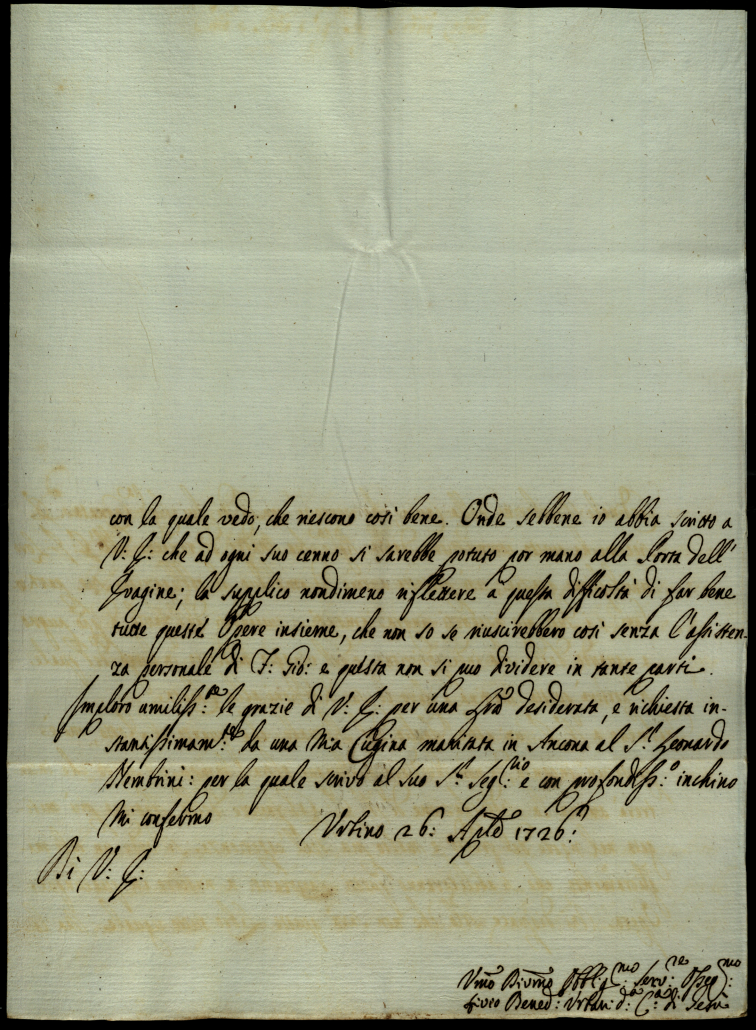 con la quale vedo, che riescono così bene. Onde sebbene io abbia scritto a
V: E: che ad ogni suo cenno si sarebbe potuto por mano alla Porta dell'
Ivagine; la supplico nondimeno riflettere a questa difficoltà di far bene
tutte queste Opere insieme, che non so se riuscirebbero così senza l'assisten-
za personale di F: Gio: e questa non si può dividere in tante parti.
Imploro umiliss:me le grazie di V: E: per una desiderata, e richiesta in-
stantissimam:te da una Mia Cugina maritata in Ancona al S.r Leonardo
Nembrini: per la quale scrivo al suo S.r Seg:rio e con profondiss:o inchino
Mi confermo Urbino 26: Aple 1726:
Di V: E:
Umo Divmo Obblig:mo Serv:re Osseq:mo
Bened:o Urban: d:a C:a di Gesù